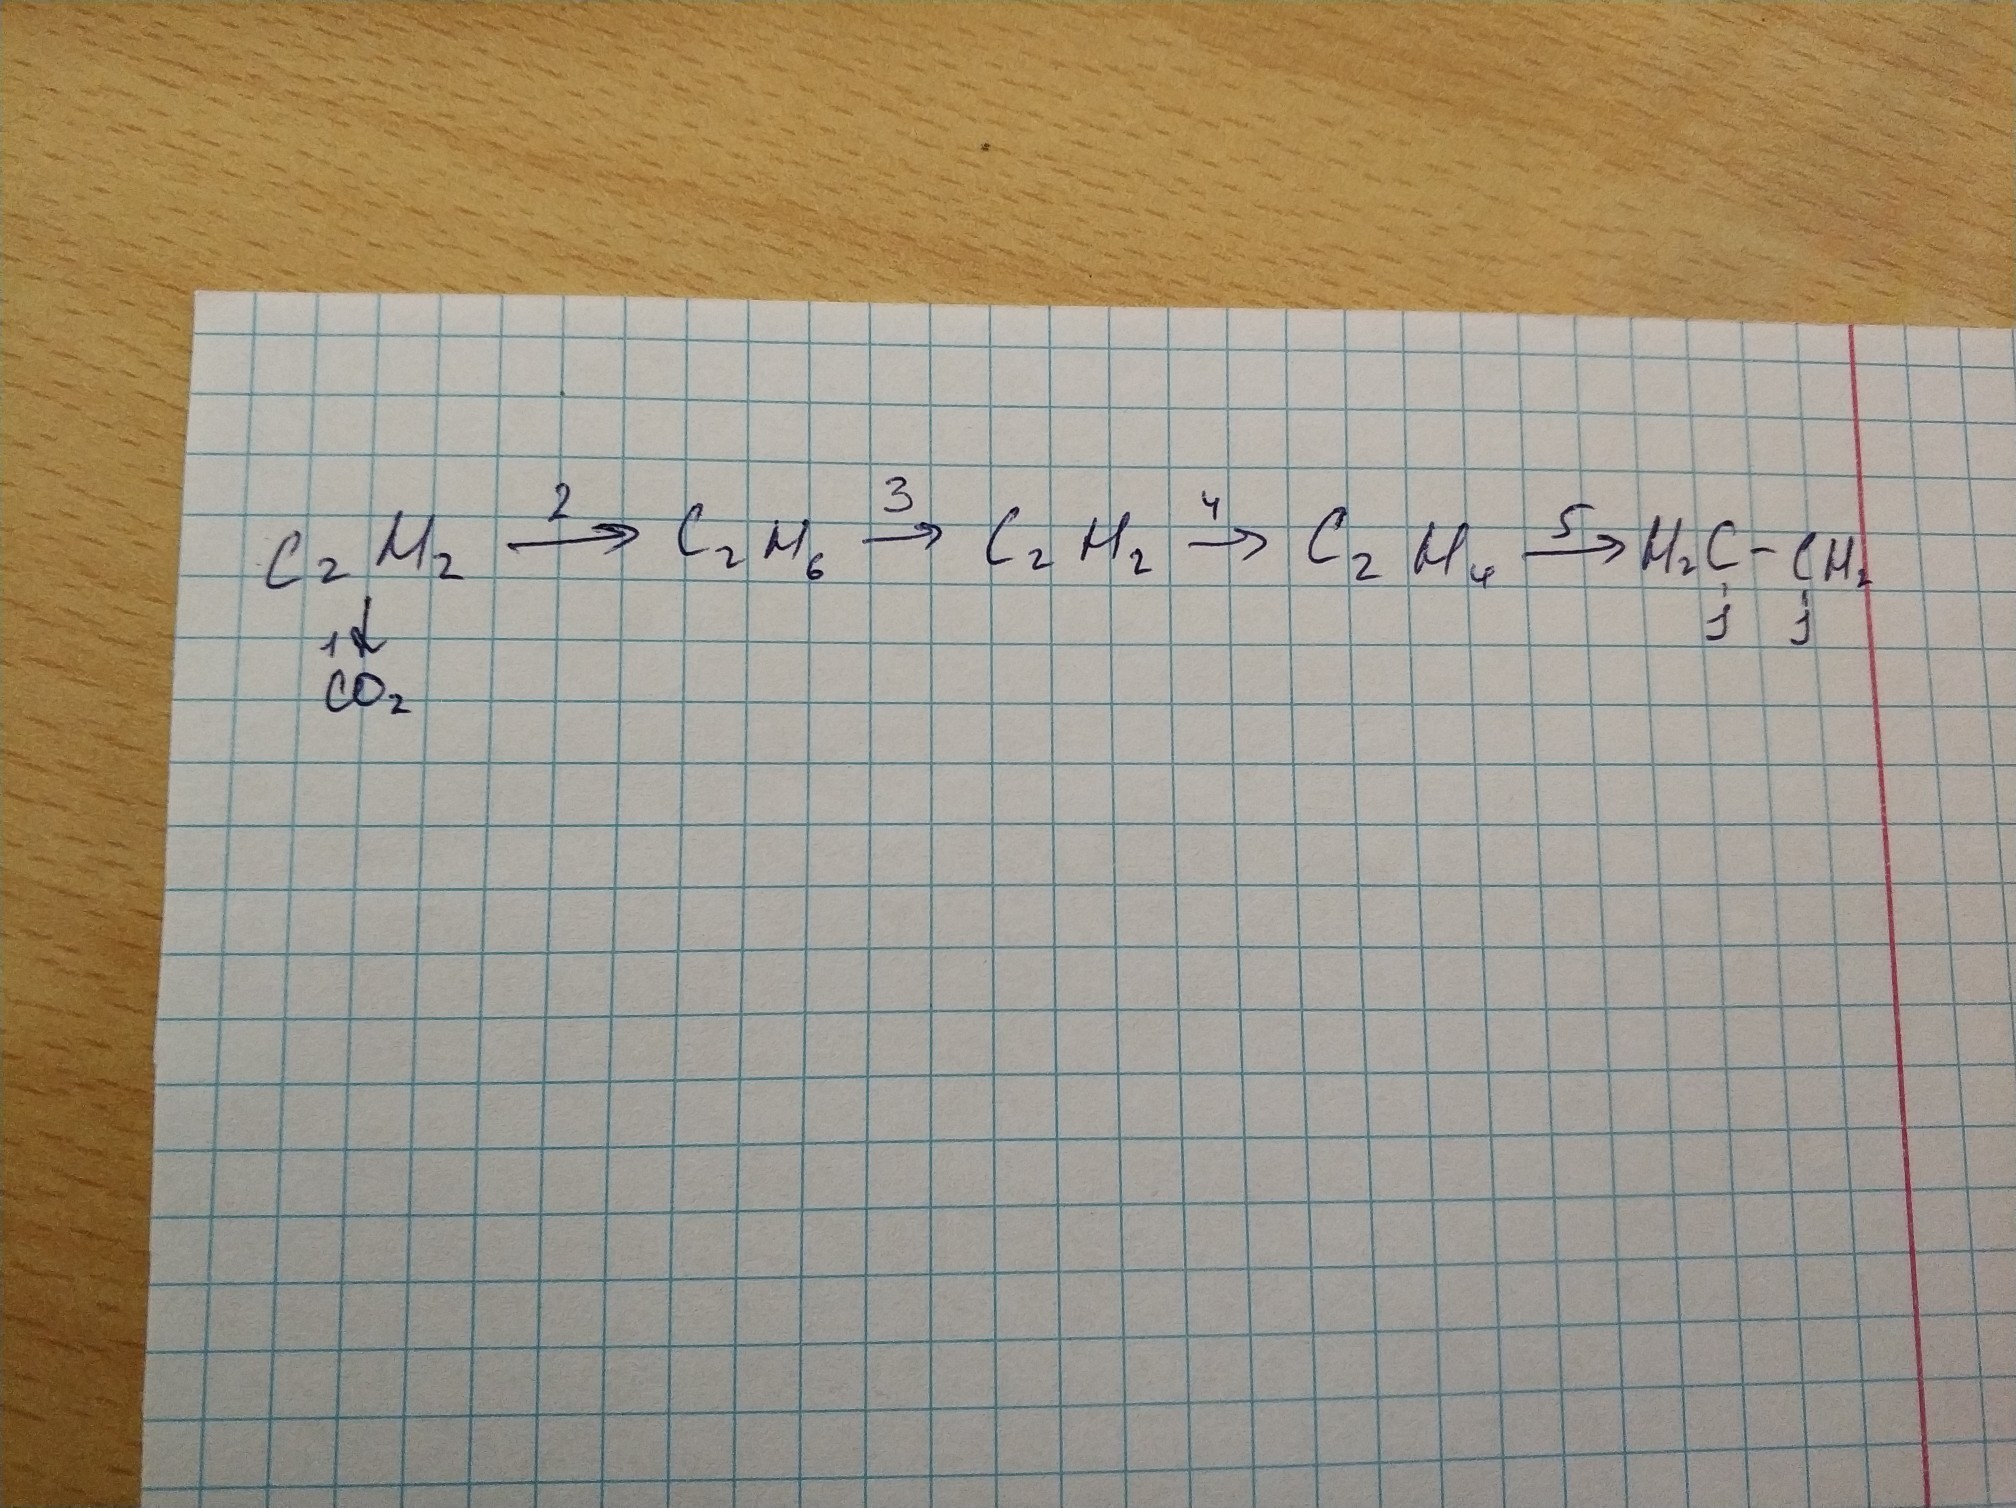 C₂H₂ →² C₂H₆ →³ C₂H₂ →⁴ C₂H₄ →⁵ H₂C-CH₂
1↓ J J
CO₂